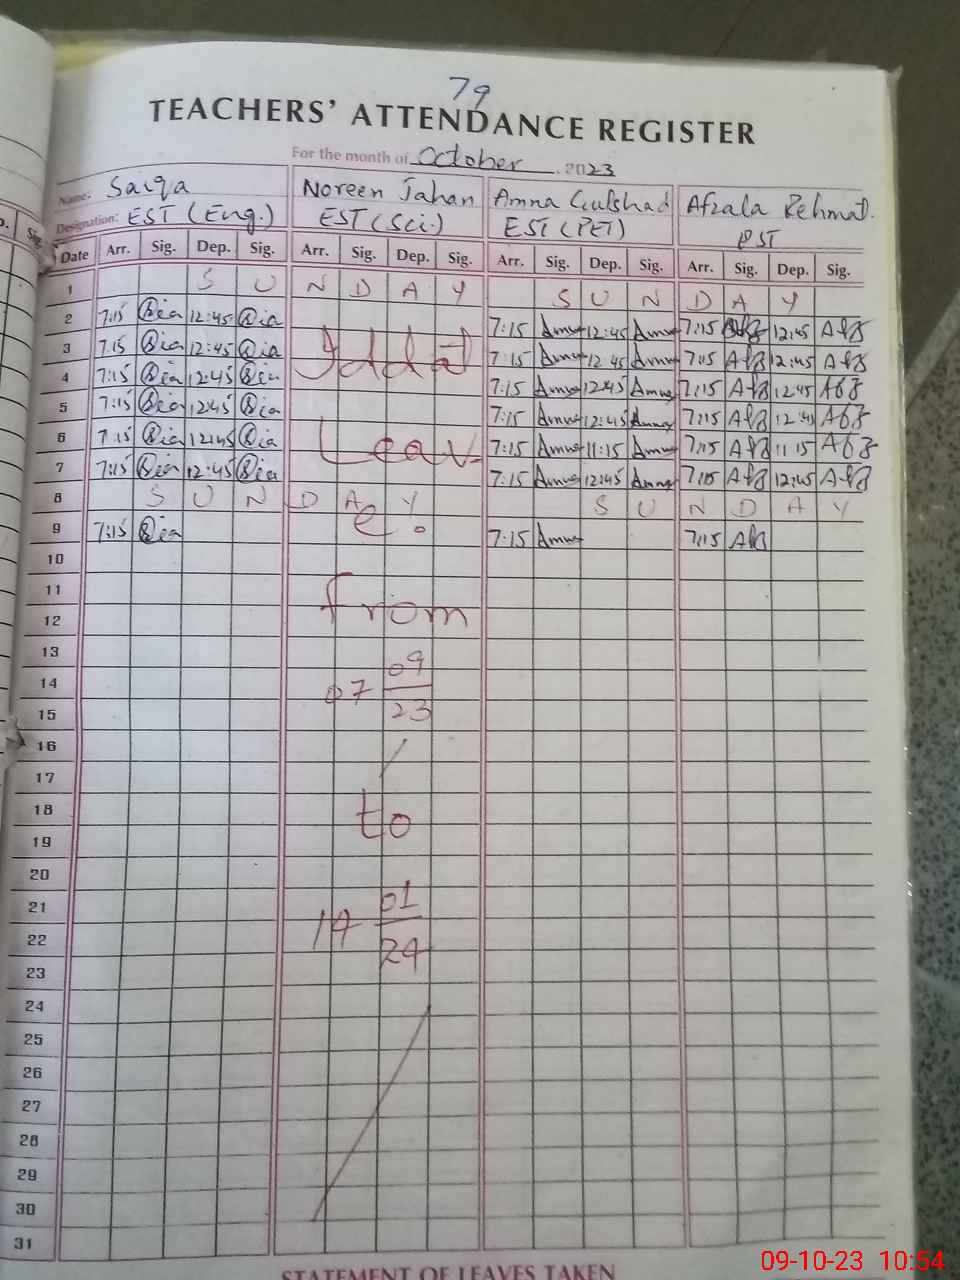 79
TEACHERS' ATTENDANCE REGISTER
For the month of October 2023
Name: Saiqa Noreen Jahan Amna Gulshad Afzala Rehmat.
Designation: EST (Eng.) EST (Sci.) EST (PET) PST
Date Arr. Sig. Dep. Sig. Arr. Sig. Dep. Sig. Arr. Sig. Dep. Sig. Arr. Sig. Dep. Sig.
1 S U N D A Y S U N D A Y
2 7:15 12:45 7:15 Amna 12:45 Amna 7:15 Afz 12:45 Afz
3 7:15 12:45 Iddat 7:15 Amna 12:45 Amna 7:15 Afz 12:45 Afz
4 7:15 12:45 7:15 Amna 12:45 Amna 7:15 Afz 12:45 Afz
5 7:15 12:45 7:15 Amna 12:45 Amna 7:15 Afz 12:45 Afz
6 7:15 12:45 Leav- 7:15 Amna 11:15 Amna 7:15 Afz 11:15 Afz
7 7:15 12:45 7:15 Amna 12:45 Amna 7:15 Afz 12:45 Afz
8 S U N D A Y S U N D A Y
9 7:15 e. 7:15 Amna 7:15 Afz
10
11
12 from
13
14 07 09
15 23
16
17
18 to
19
20
21 01
22 14 24
23
24
25
26
27
28
29
30
31
STATEMENT OF LEAVES TAKEN
09-10-23 10:54